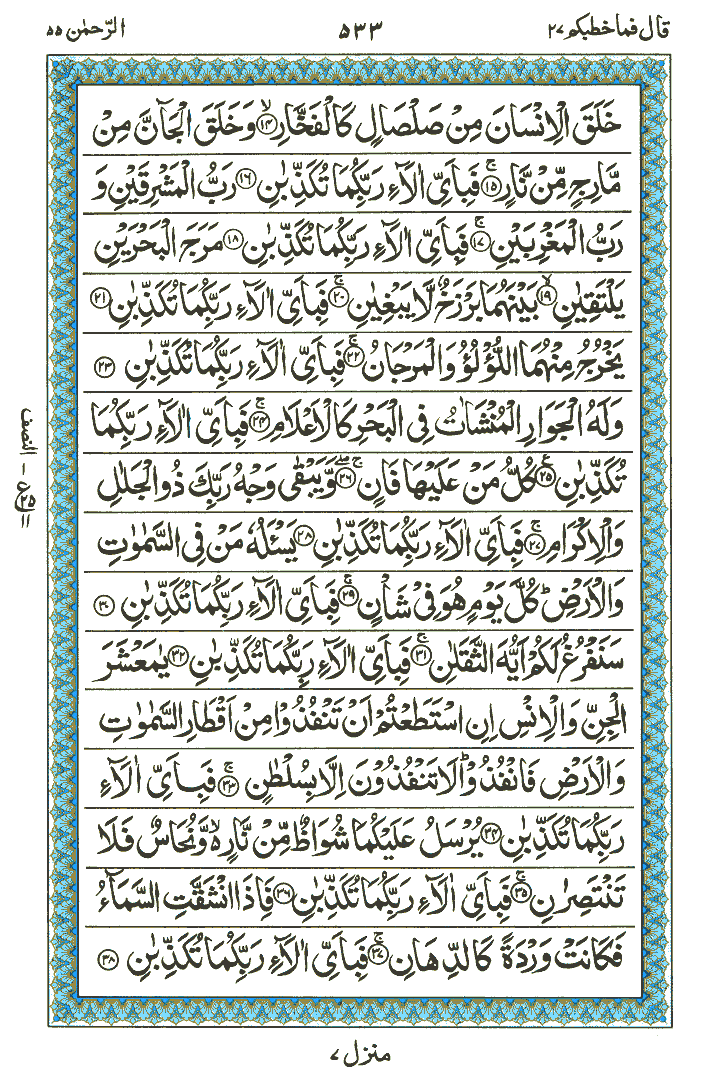 قال فما خطبكم ٢٧
٥٣٣
الرّحمٰن ٥٥
خَلَقَ الْاِنْسَانَ مِنْ صَلْصَالٍ كَالْفَخَّارِ ۙ﴿١٤﴾ وَخَلَقَ الْجَآنَّ مِنْ
مَّارِجٍ مِّنْ نَّارٍ ۚ﴿١٥﴾ فَبِاَىِّ اٰلَآءِ رَبِّكُمَا تُكَذِّبٰنِ ﴿١٦﴾ رَبُّ الْمَشْرِقَيْنِ وَ
رَبُّ الْمَغْرِبَيْنِ ۚ﴿١٧﴾ فَبِاَىِّ اٰلَآءِ رَبِّكُمَا تُكَذِّبٰنِ ﴿١٨﴾ مَرَجَ الْبَحْرَيْنِ
يَلْتَقِيٰنِ ۙ﴿١٩﴾ بَيْنَهُمَا بَرْزَخٌ لَّا يَبْغِيٰنِ ۚ﴿٢٠﴾ فَبِاَىِّ اٰلَآءِ رَبِّكُمَا تُكَذِّبٰنِ ﴿٢١﴾
يَخْرُجُ مِنْهُمَا اللُّؤْلُؤُ وَالْمَرْجَانُ ۚ﴿٢٢﴾ فَبِاَىِّ اٰلَآءِ رَبِّكُمَا تُكَذِّبٰنِ ﴿٢٣﴾
وَلَهُ الْجَوَارِ الْمُنْشَاٰتُ فِى الْبَحْرِ كَالْاَعْلَامِ ۚ﴿٢٤﴾ فَبِاَىِّ اٰلَآءِ رَبِّكُمَا
تُكَذِّبٰنِ ﴿٢٥﴾ كُلُّ مَنْ عَلَيْهَا فَانٍ ۚۖ﴿٢٦﴾ وَّيَبْقٰى وَجْهُ رَبِّكَ ذُو الْجَلٰلِ
وَالْاِكْرَامِ ۚ﴿٢٧﴾ فَبِاَىِّ اٰلَآءِ رَبِّكُمَا تُكَذِّبٰنِ ﴿٢٨﴾ يَسْـَٔلُهٗ مَنْ فِى السَّمٰوٰتِ
وَالْاَرْضِ ؕ كُلَّ يَوْمٍ هُوَ فِىْ شَاْنٍ ۚ﴿٢٩﴾ فَبِاَىِّ اٰلَآءِ رَبِّكُمَا تُكَذِّبٰنِ ﴿٣٠﴾
سَنَفْرُغُ لَكُمْ اَيُّهَ الثَّقَلٰنِ ۚ﴿٣١﴾ فَبِاَىِّ اٰلَآءِ رَبِّكُمَا تُكَذِّبٰنِ ﴿٣٢﴾ يٰمَعْشَرَ
الْجِنِّ وَالْاِنْسِ اِنِ اسْتَطَعْتُمْ اَنْ تَنْفُذُوْا مِنْ اَقْطَارِ السَّمٰوٰتِ
وَالْاَرْضِ فَانْفُذُوْا ؕ لَا تَنْفُذُوْنَ اِلَّا بِسُلْطٰنٍ ۚ﴿٣٣﴾ فَبِاَىِّ اٰلَآءِ
رَبِّكُمَا تُكَذِّبٰنِ ﴿٣٤﴾ يُرْسَلُ عَلَيْكُمَا شُوَاظٌ مِّنْ نَّارٍ ۙ۬ وَّنُحَاسٌ فَلَا
تَنْتَصِرٰنِ ۚ﴿٣٥﴾ فَبِاَىِّ اٰلَآءِ رَبِّكُمَا تُكَذِّبٰنِ ﴿٣٦﴾ فَاِذَا انْشَقَّتِ السَّمَآءُ
فَكَانَتْ وَرْدَةً كَالدِّهَانِ ۚ﴿٣٧﴾ فَبِاَىِّ اٰلَآءِ رَبِّكُمَا تُكَذِّبٰنِ ﴿٣٨﴾
النصف
منزل ٧